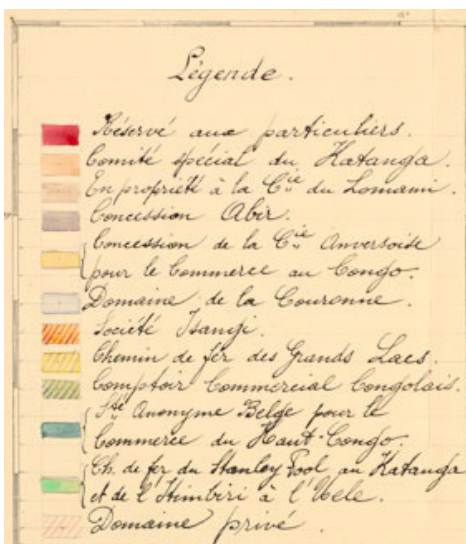 Légende.
Réservé aux particuliers.
Comité spécial du Katanga.
En propriété à la Cie du Lomami.
Concession Abir.
Concession de la Cie Anversoise
pour le Commerce au Congo.
Domaine de la Couronne.
Société Isangi.
Chemin de fer des Grands Lacs.
Comptoir Commercial Congolais.
Sté Anonyme Belge pour le
Commerce du Haut-Congo.
Ch. de fer du Stanley Pool au Katanga
et de l'Itimbiri à l'Uele.
Domaine privé.